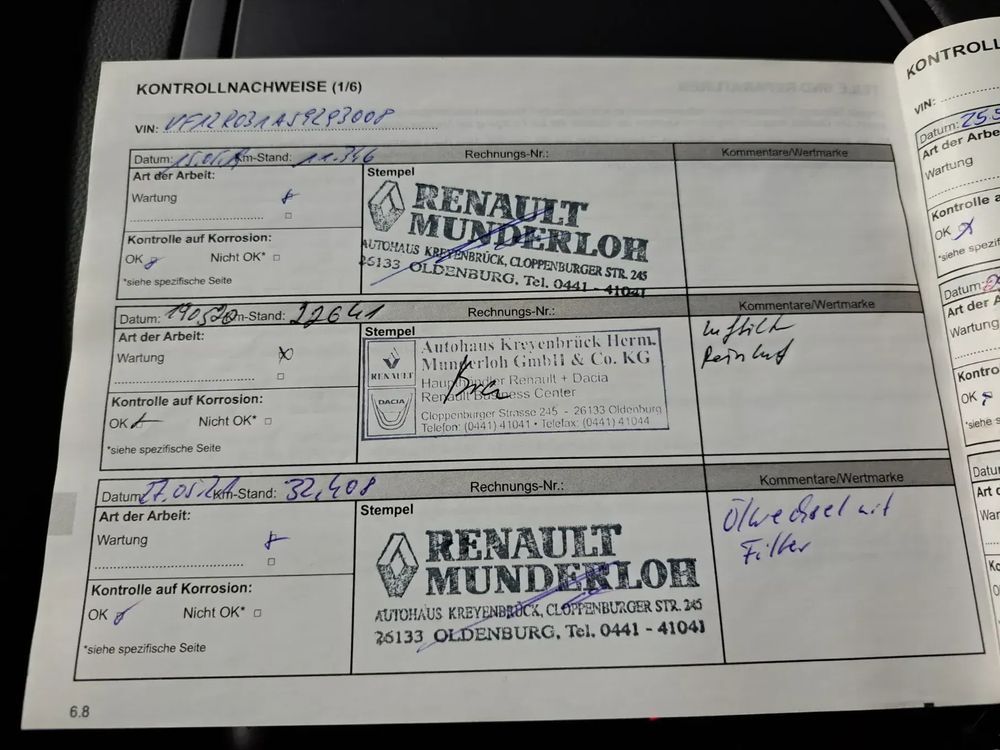 KONTROLLNACHWEISE (1/6)
VIN: VF12R031A59293008
Datum: 15.05. Km-Stand: 11.346 Rechnungs-Nr.: Kommentare/Wertmarke
Art der Arbeit:
Wartung
Stempel
RENAULT
MUNDERLOH
AUTOHAUS KREYENBRÜCK, CLOPPENBURGER STR. 245
26133 OLDENBURG, Tel. 0441 - 41041
Kontrolle auf Korrosion:
OK Nicht OK*
*siehe spezifische Seite
Datum: 190520 Km-Stand: 22641 Rechnungs-Nr.: Kommentare/Wertmarke
Art der Arbeit:
Wartung
Stempel
RENAULT
DACIA
Autohaus Kreyenbrück Herm.
Munderloh GmbH & Co. KG
Haupthändler Renault + Dacia
Renault Business Center
Cloppenburger Strasse 245 - 26133 Oldenburg
Telefon: (0441) 41041 • Telefax: (0441) 41044
Kontrolle auf Korrosion:
OK Nicht OK*
*siehe spezifische Seite
Datum: 27.05.21 Km-Stand: 32.408 Rechnungs-Nr.: Kommentare/Wertmarke
Art der Arbeit:
Wartung
Stempel
RENAULT
MUNDERLOH
AUTOHAUS KREYENBRÜCK, CLOPPENBURGER STR. 245
26133 OLDENBURG, Tel. 0441 - 41041
Ölwechsel mit
Filter
Kontrolle auf Korrosion:
OK Nicht OK*
*siehe spezifische Seite
6.8
KONTROLL
VIN:
Datum:
Art der Arbe
Wartung
Kontrolle a
OK
*siehe spezifisc
Datum:
Art der A
Wartung
Kontro
OK
*siehe s
Datu
Art
War
Ko
OK